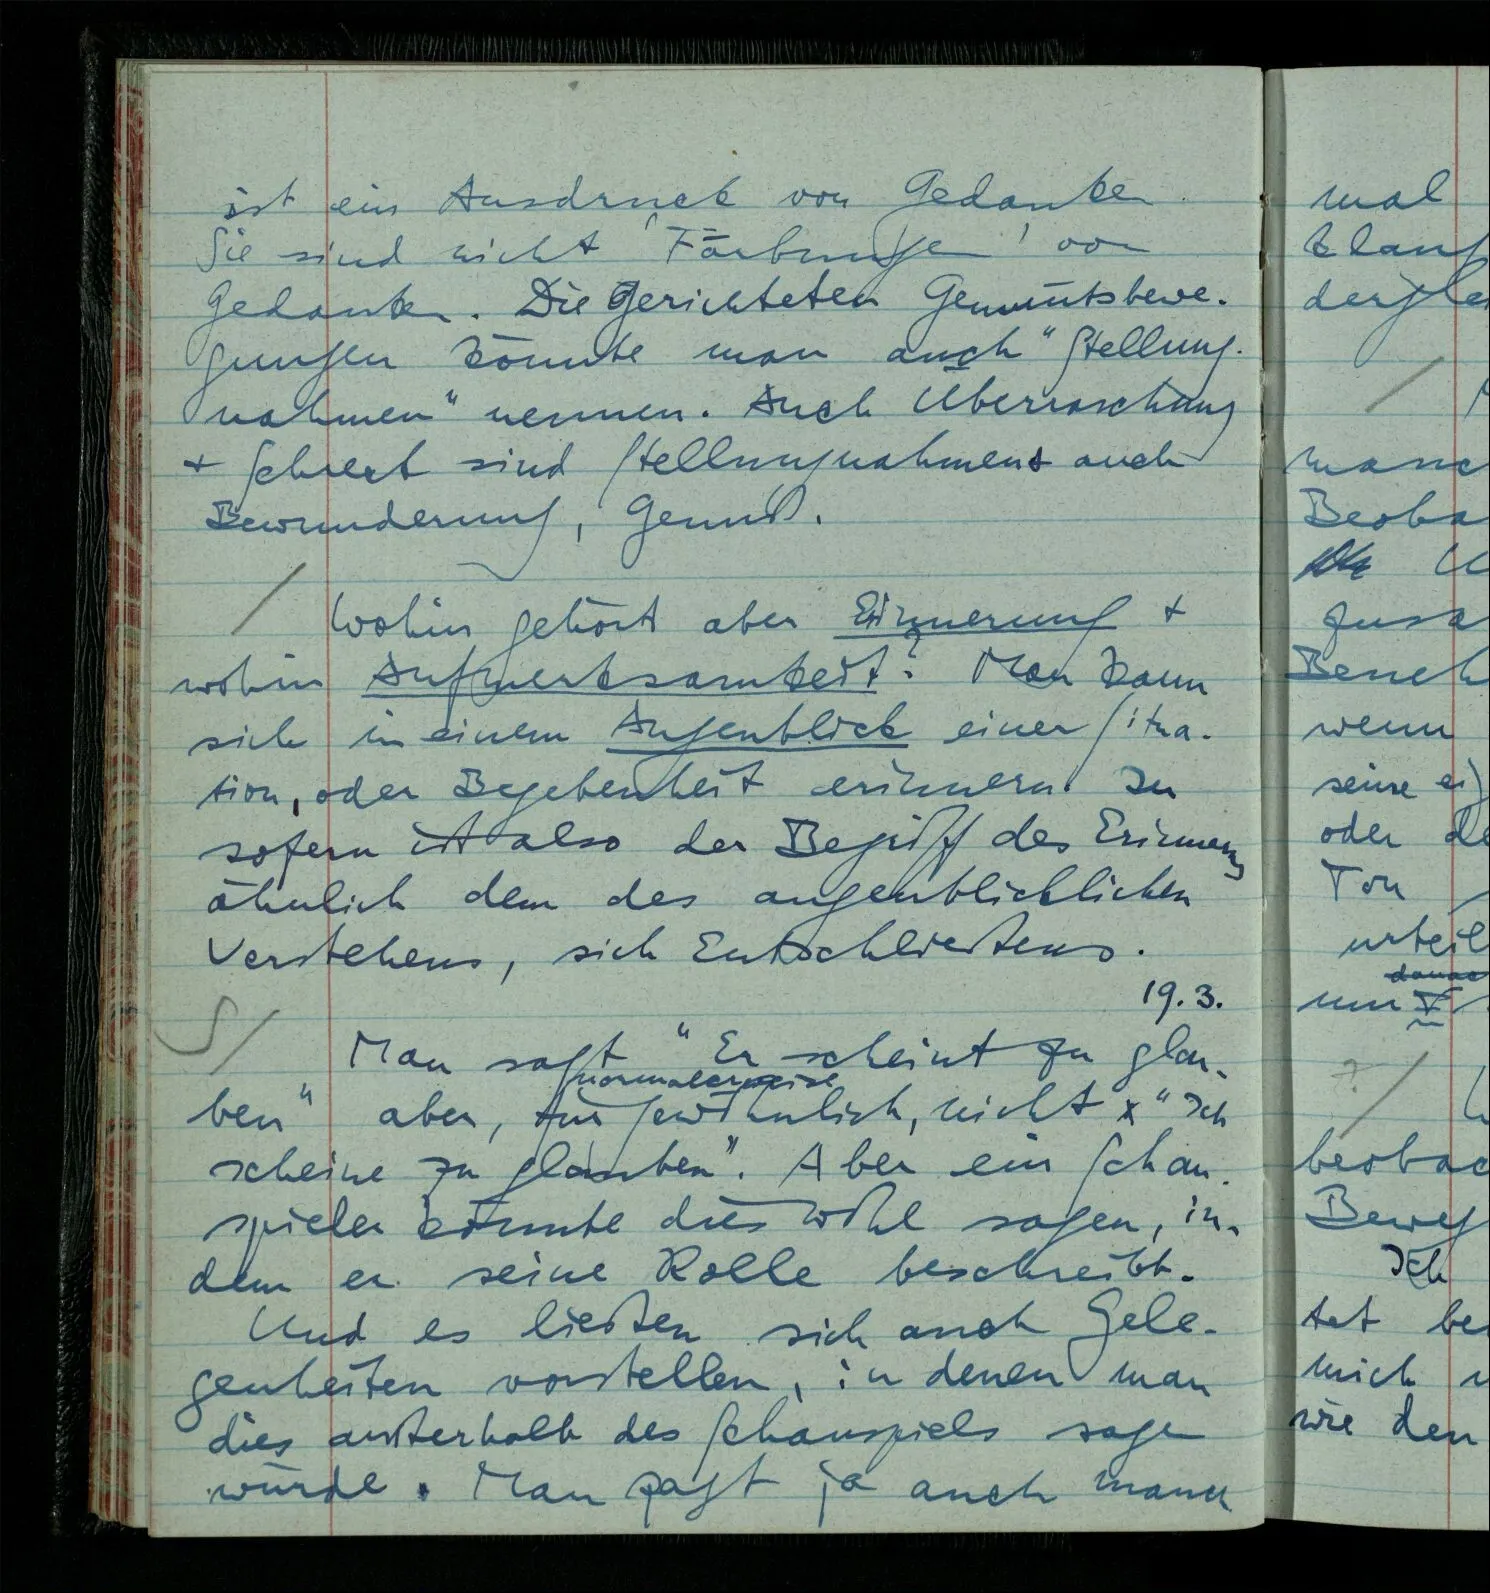 ist ein Ausdruck von Gedanken.
Sie sind nicht 'Färbungen' von
Gedanken. Die gerichteten Gemütsbewe-
gungen könnte man auch "Stellung-
nahmen" nennen. Auch Überraschung
+ Schreck sind Stellungnahmen & auch
Bewunderung, Genuß.
/ Wohin gehört aber Erinnerung +
wohin Aufmerksamkeit? Man kann
sich in einem Augenblick einer Situa-
tion, oder Begebenheit erinnern. In
sofern ist also der Begriff des Erinnerns
ähnlich dem des augenblicklichen
Verstehens, sich Entschließens.
19.3.
S / Man sagt "Er scheint zu glau-
normalerweise
ben" aber, für gewöhnlich, nicht x "Ich
scheine zu glauben". Aber ein Schau-
spieler könnte dies wohl sagen, in-
dem er seine Rolle beschreibt.
Und es ließen sich auch Gele-
genheiten vorstellen, in denen man
dies außerhalb des Schauspiels sagen
würde. Man sagt ja auch manch
mal
klang
/
manc
Beoba
zusa
Beneh
wenn
seine ei
oder de
Ton
urteil
danac
um
? /
beobac
Beweg
Ich
tet be
mich
wie den